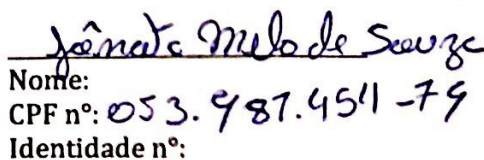 Jônata Melo de Souza
Nome:
CPF nº: 053.987.454-79
Identidade nº: